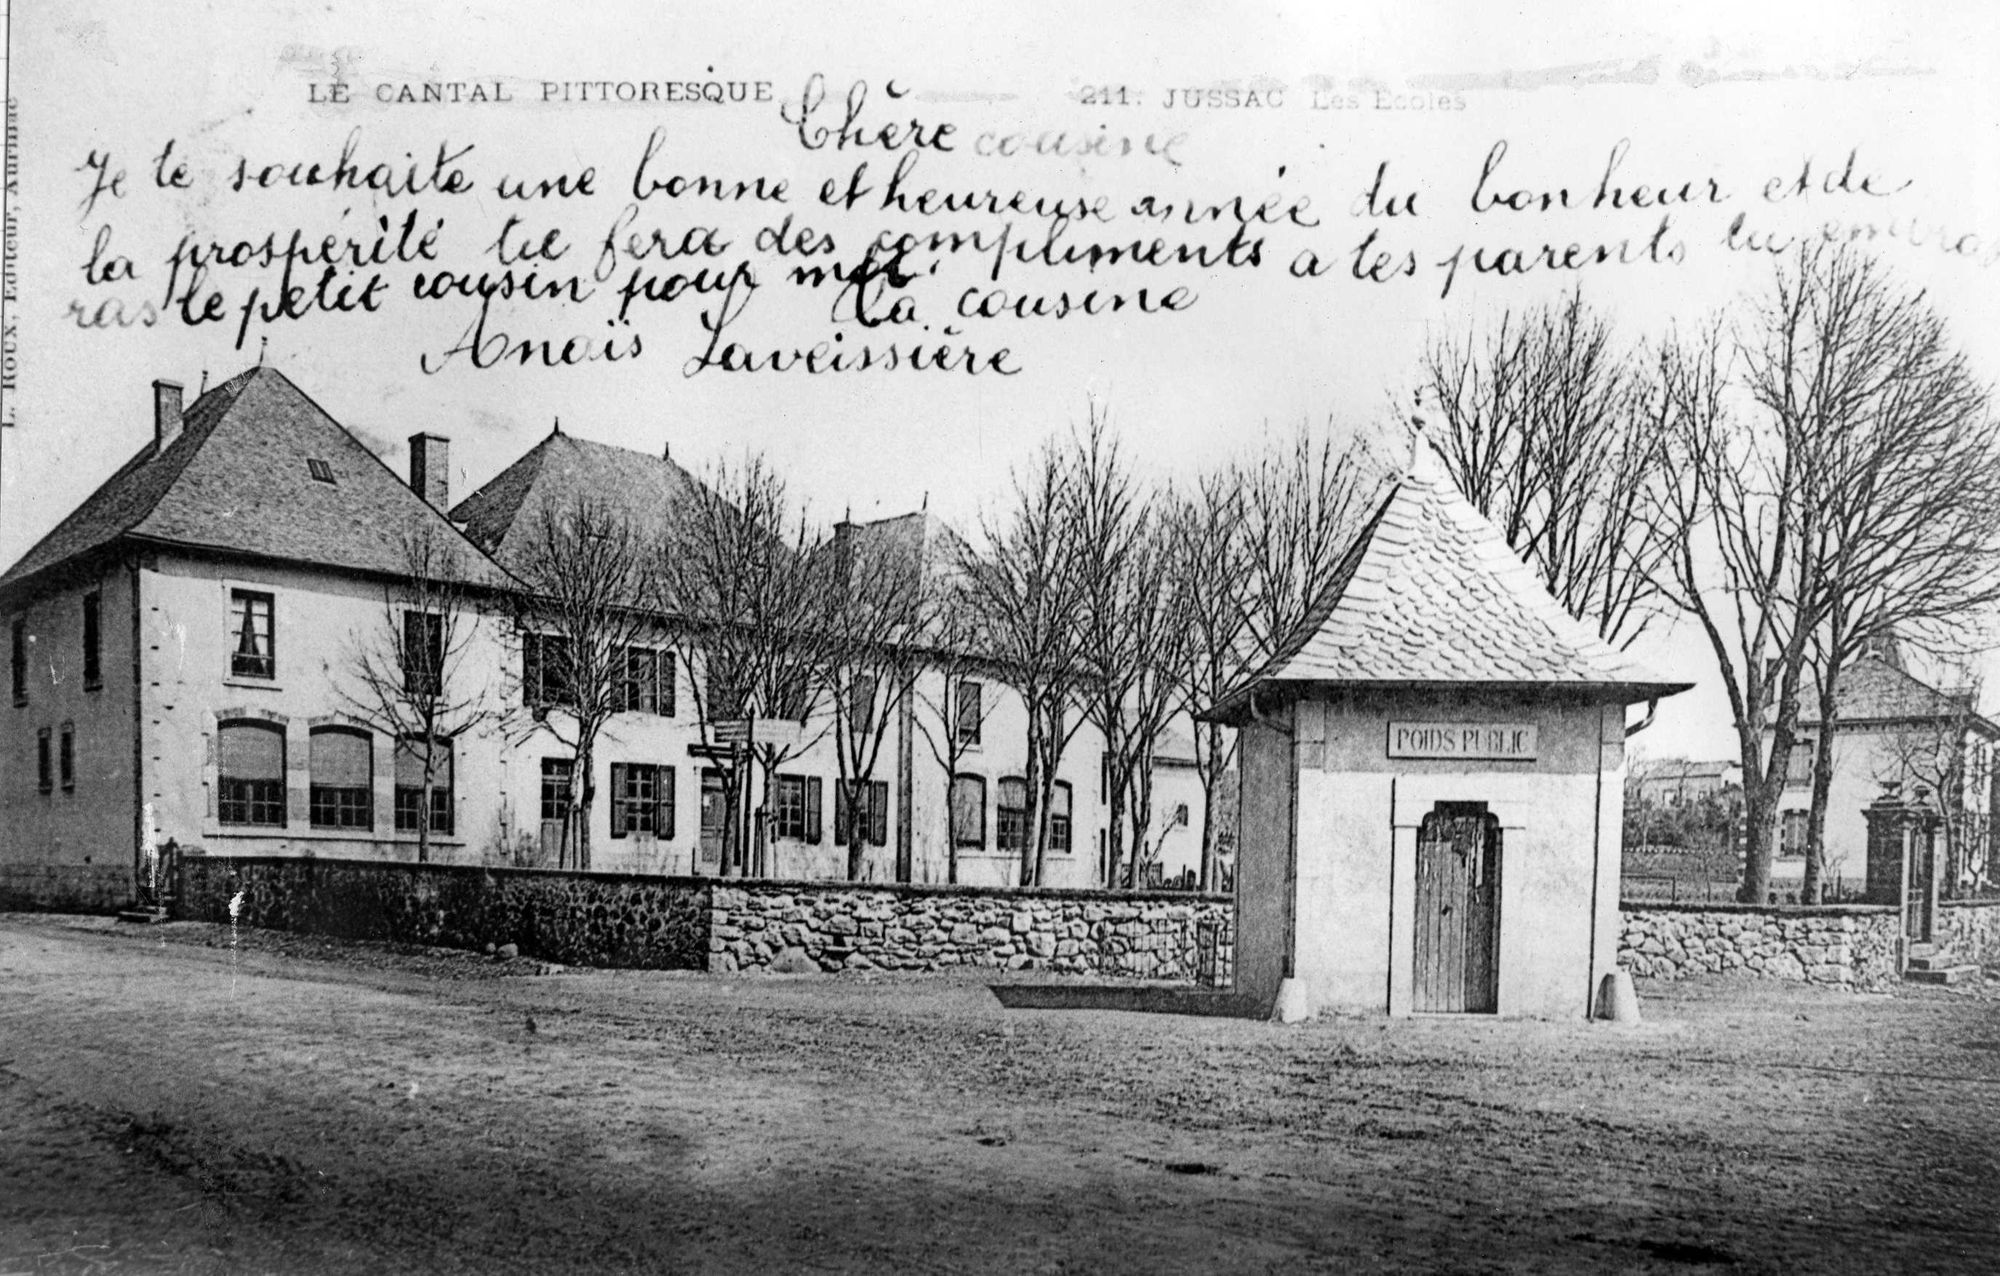 LE CANTAL PITTORESQUE 211. JUSSAC Les Ecoles
Chère cousine
Je te souhaite une bonne et heureuse année du bonheur et de
la prospérité tu fera des compliments a tes parents tu embras
ras le petit cousin pour moi. Ta cousine
Anaïs Laveissière
L. ROUX, Editeur, Aurillac
POIDS PUBLIC